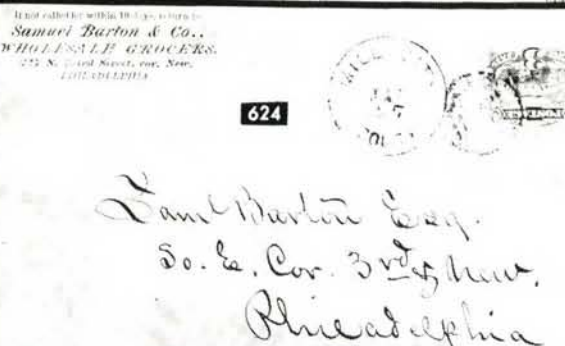 If not called for within 10 days, return to
Samuel Barton & Co.,
WHOLESALE GROCERS.
N. Third Street, cor. New,
PHILADELPHIA
624
Saml Barton Esq.
So. E. Cor. 3rd & New.
Philadelphia